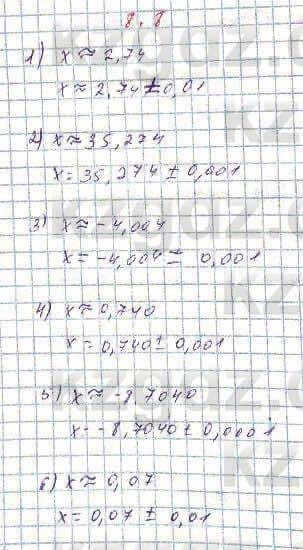 8.8
1) x ≈ 2,74
x ≈ 2,74 ± 0,01
2) x ≈ 35,274
x = 35,274 ± 0,001
3) x ≈ -4,004
x = -4,004 ± 0,001
4) x ≈ 0,740
x = 0,740 ± 0,001
5) x ≈ -8,7040
x = -8,7040 ± 0,0001
6) x ≈ 0,07
x = 0,07 ± 0,01